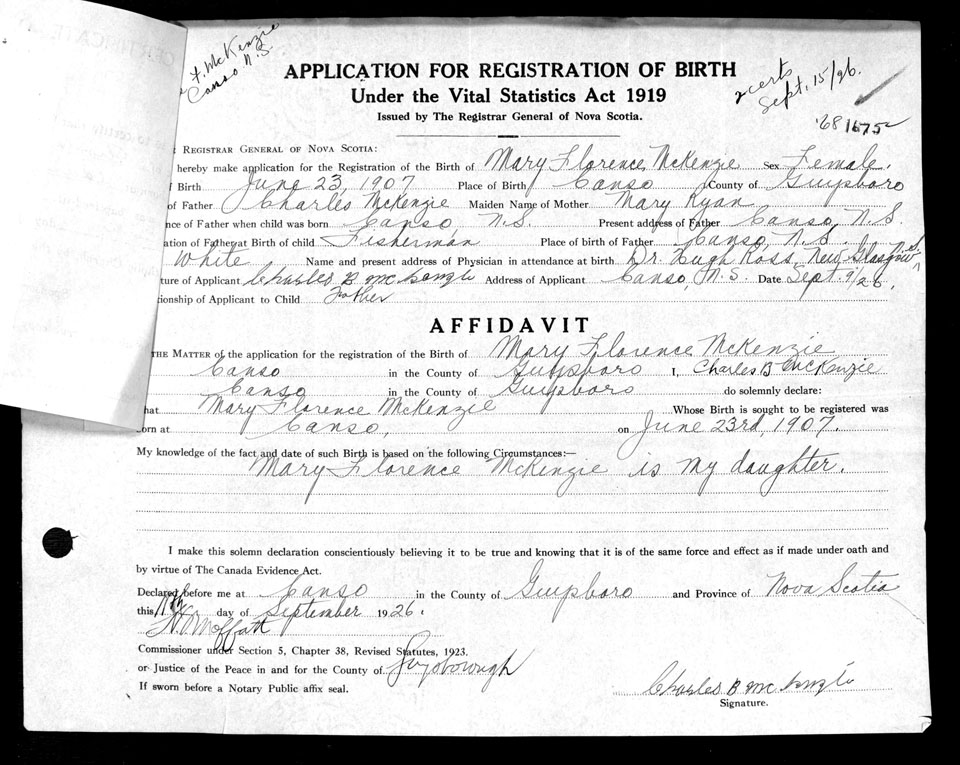 F. McKenzie
Canso N.S.
APPLICATION FOR REGISTRATION OF BIRTH
Under the Vital Statistics Act 1919
Issued by The Registrar General of Nova Scotia.
2 certs
Sept. 15/26.
'68 1675
REGISTRAR GENERAL OF NOVA SCOTIA:
hereby make application for the Registration of the Birth of Mary Florence McKenzie Sex Female.
Birth June 23, 1907 Place of Birth Canso County of Guysboro
of Father Charles McKenzie Maiden Name of Mother Mary Ryan
nce of Father when child was born Canso, N.S. Present address of Father Canso, N.S.
ation of Father at Birth of child Fisherman Place of birth of Father Canso, N.S.
White Name and present address of Physician in attendance at birth Dr. Hugh Ross, New Glasgow N.S.
ture of Applicant Charles B McKenzie Address of Applicant Canso, N.S. Date Sept. 9/26,
tionship of Applicant to Child Father
AFFIDAVIT
THE MATTER of the application for the registration of the Birth of Mary Florence McKenzie
Canso in the County of Guysboro I, Charles B McKenzie
Canso in the County of Guysboro do solemnly declare:
hat Mary Florence McKenzie Whose Birth is sought to be registered was
orn at Canso, on June 23rd, 1907.
My knowledge of the fact and date of such Birth is based on the following Circumstances:—
Mary Florence McKenzie is my daughter.
I make this solemn declaration conscientiously believing it to be true and knowing that it is of the same force and effect as if made under oath and
by virtue of The Canada Evidence Act.
Declared before me at Canso in the County of Guysboro and Province of Nova Scotia
this day of September 1926.
Moffatt
Commissioner under Section 5, Chapter 38, Revised Statutes, 1923.
or Justice of the Peace in and for the County of Guysborough
If sworn before a Notary Public affix seal.
Charles B McKenzie
Signature.